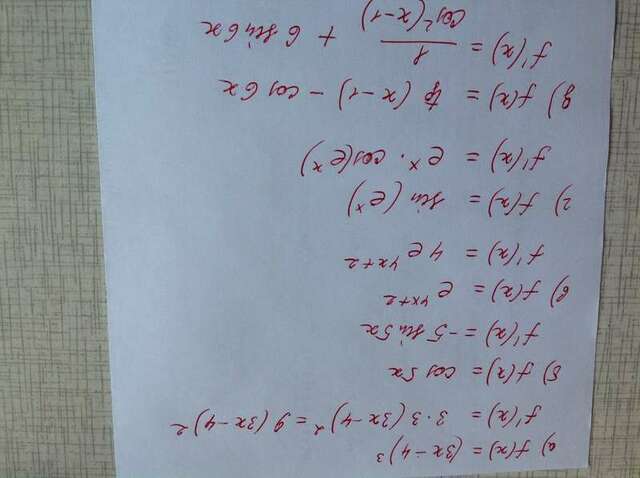 а) f(x) = (3x-4)³
f'(x) = 3·3(3x-4)² = 9(3x-4)²
б) f(x) = cos 5x
f'(x) = -5 sin 5x
в) f(x) = e^{4x+2}
f'(x) = 4e^{4x+2}
г) f(x) = sin(e^x)
f'(x) = e^x · cos(e^x)
д) f(x) = tg (x-1) - cos 6x
f'(x) = \frac{1}{cos²(x-1)} + 6 sin 6x